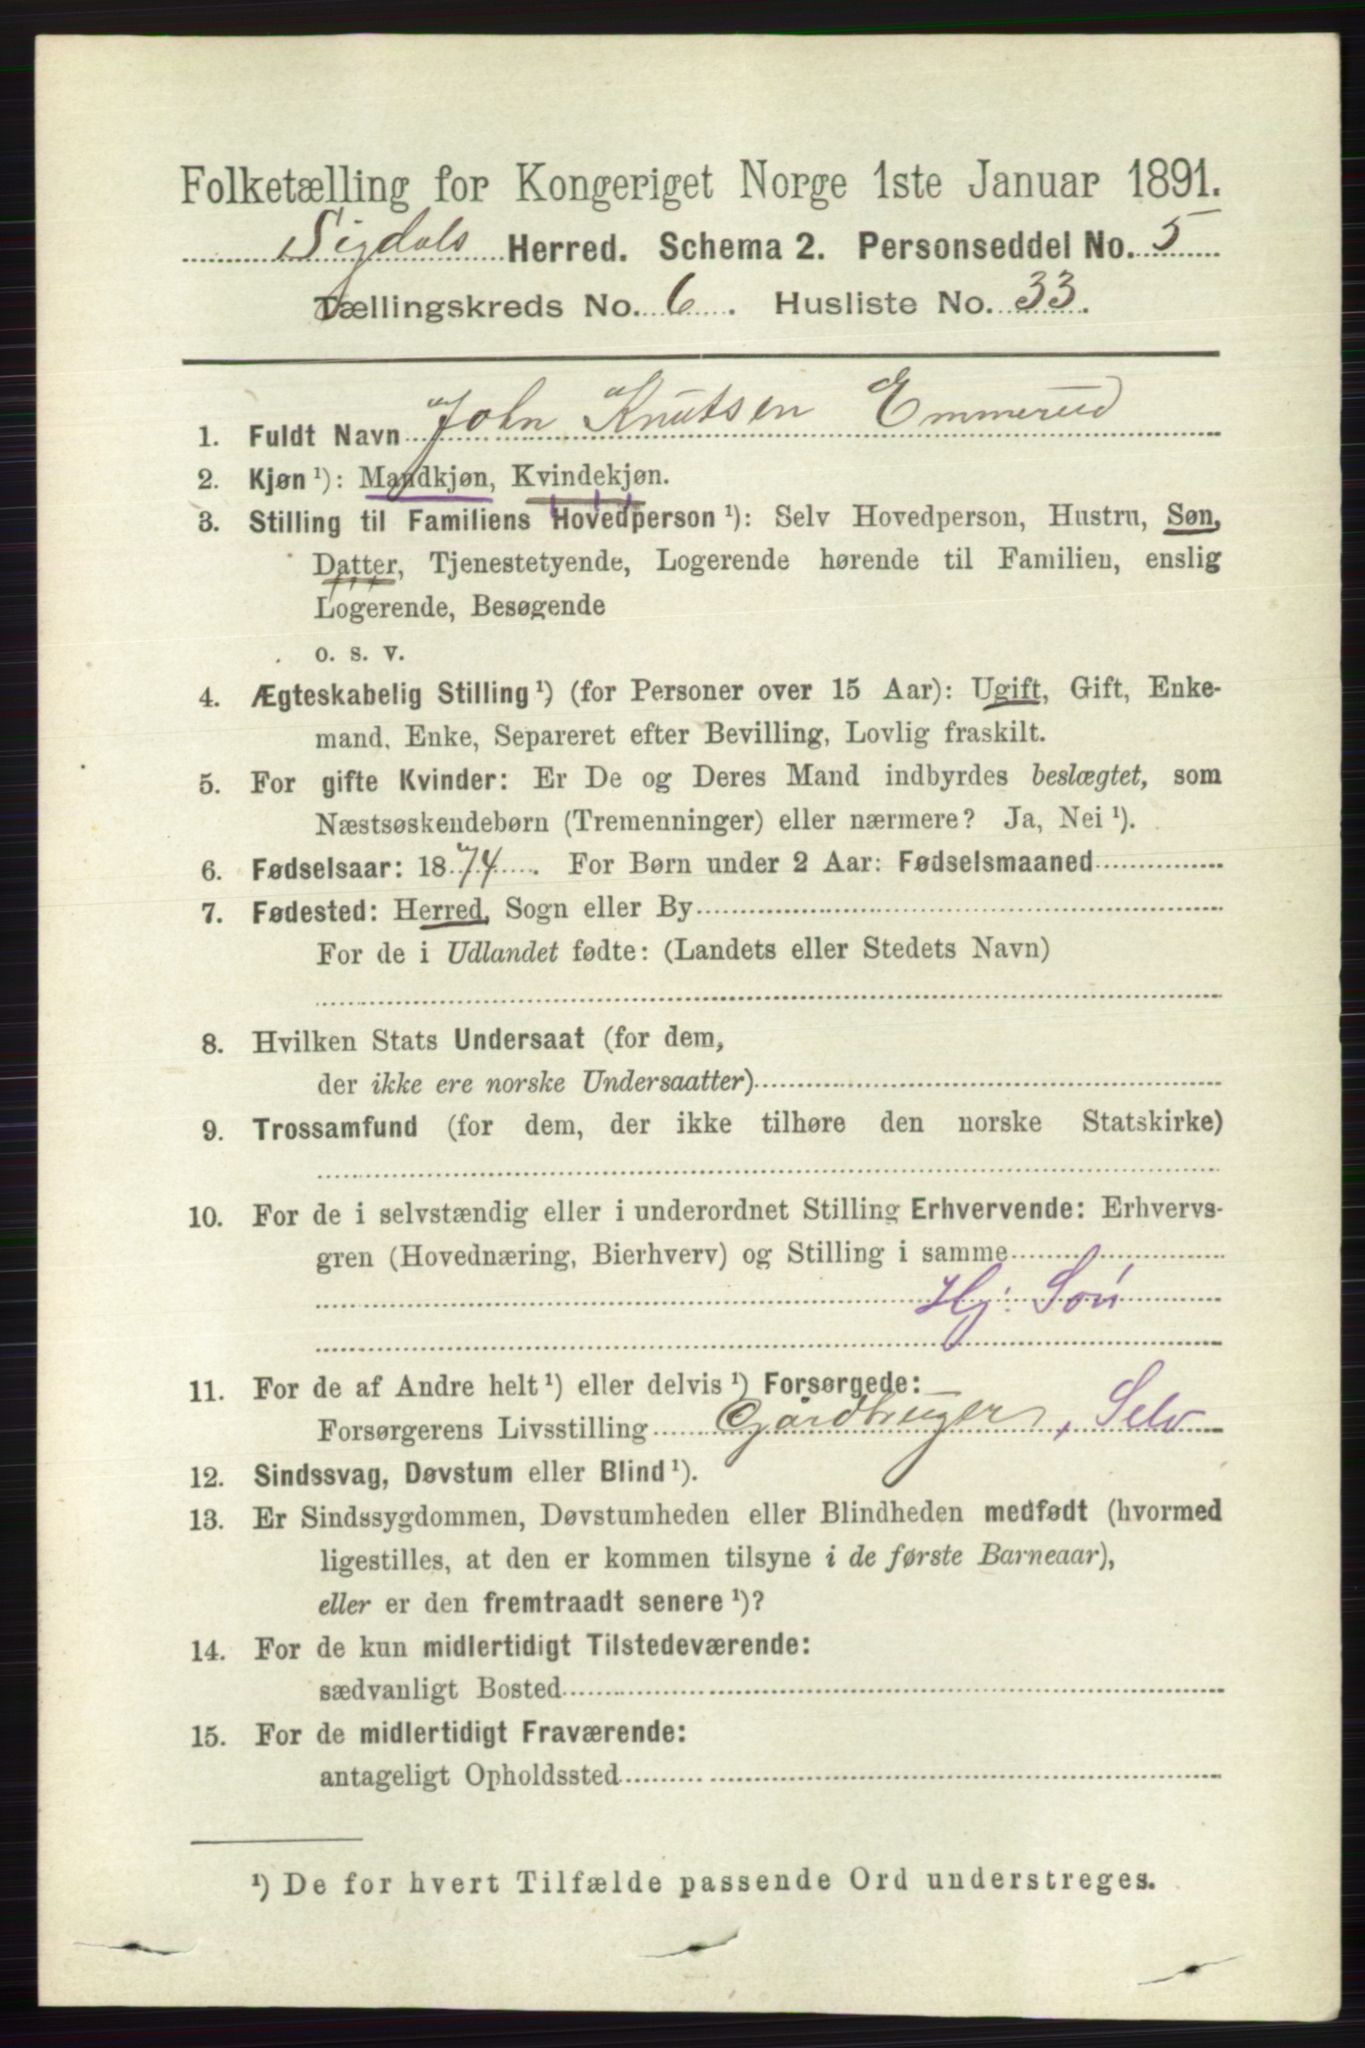 Folketælling for Kongeriget Norge 1ste Januar 1891.
Sigdals Herred. Schema 2. Personseddel No. 5
Tællingskreds No. 6. Husliste No. 33.
1. Fuldt Navn John Knutsen Emmerud
2. Kjøn ¹): Mandkjøn, Kvindekjøn.
3. Stilling til Familiens Hovedperson ¹): Selv Hovedperson, Hustru, Søn,
Datter, Tjenestetyende, Logerende hørende til Familien, enslig
Logerende, Besøgende
o. s. v.
4. Ægteskabelig Stilling ¹) (for Personer over 15 Aar): Ugift, Gift, Enke-
mand, Enke, Separeret efter Bevilling, Lovlig fraskilt.
5. For gifte Kvinder: Er De og Deres Mand indbyrdes beslægtet, som
Næstsøskendebørn (Tremenninger) eller nærmere? Ja, Nei ¹).
6. Fødselsaar: 1874. For Børn under 2 Aar: Fødselsmaaned
7. Fødested: Herred, Sogn eller By
For de i Udlandet fødte: (Landets eller Stedets Navn)
8. Hvilken Stats Undersaat (for dem,
der ikke ere norske Undersaatter)
9. Trossamfund (for dem, der ikke tilhøre den norske Statskirke)
10. For de i selvstændig eller i underordnet Stilling Erhvervende: Erhvervs-
gren (Hovednæring, Bierhverv) og Stilling i samme
Hj: Søn
11. For de af Andre helt ¹) eller delvis ¹) Forsørgede:
Forsørgerens Livsstilling Gårdbruger, Selv
12. Sindssvag, Døvstum eller Blind ¹).
13. Er Sindssygdommen, Døvstumheden eller Blindheden medfødt (hvormed
ligestilles, at den er kommen tilsyne i de første Barneaar),
eller er den fremtraadt senere ¹)?
14. For de kun midlertidigt Tilstedeværende:
sædvanligt Bosted
15. For de midlertidigt Fraværende:
antageligt Opholdssted
¹) De for hvert Tilfælde passende Ord understreges.